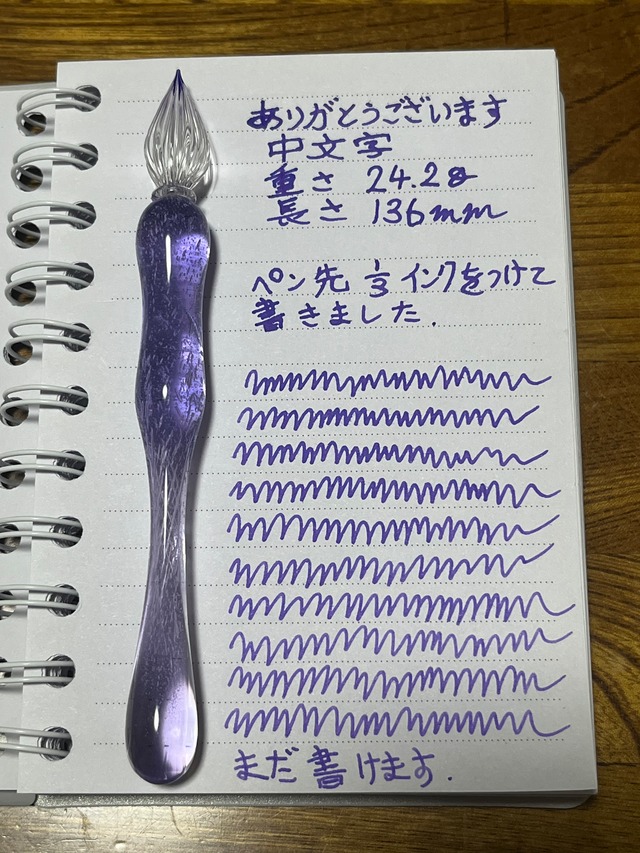 ありがとうございます
中文字
重さ 24.2g
長さ 136mm
ペン先 1/3 インクをつけて
書きました.
まだ書けます.